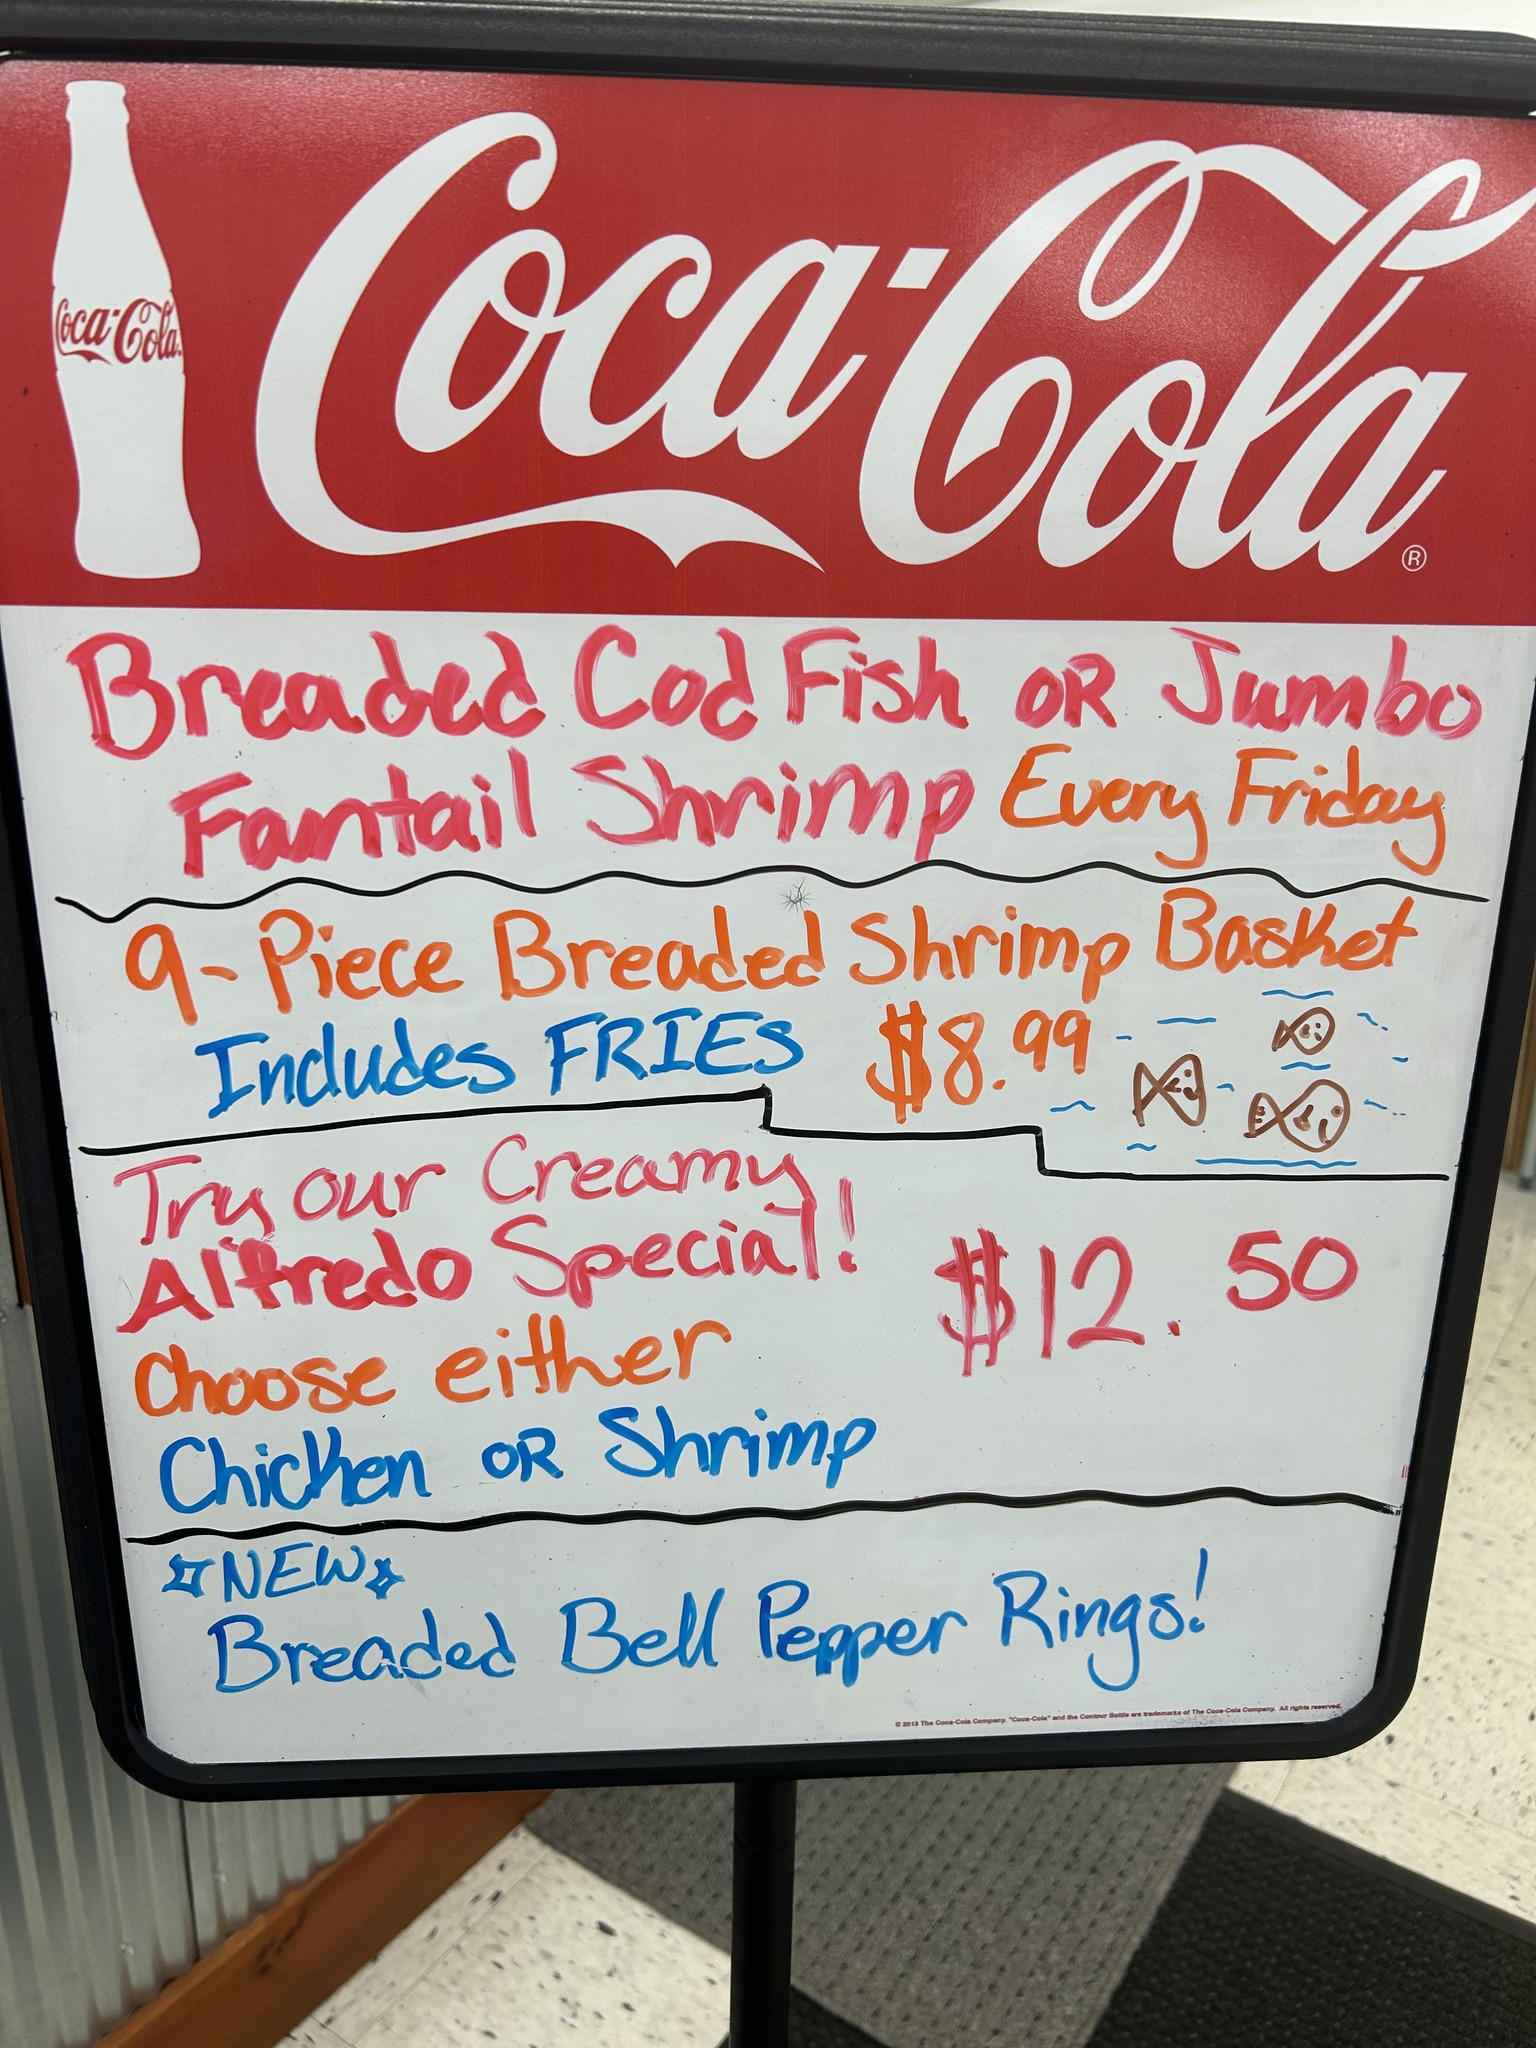 Coca-Cola
Coca-Cola®
Breaded Cod Fish OR Jumbo
Fantail Shrimp Every Friday
9-Piece Breaded Shrimp Basket
Includes FRIES $8.99
Try our Creamy
Alfredo Special!
$12.50
Choose either
Chicken OR Shrimp
NEW
Breaded Bell Pepper Rings!
© 2013 The Coca-Cola Company. "Coca-Cola" and the Contour Bottle are trademarks of The Coca-Cola Company. All rights reserved.